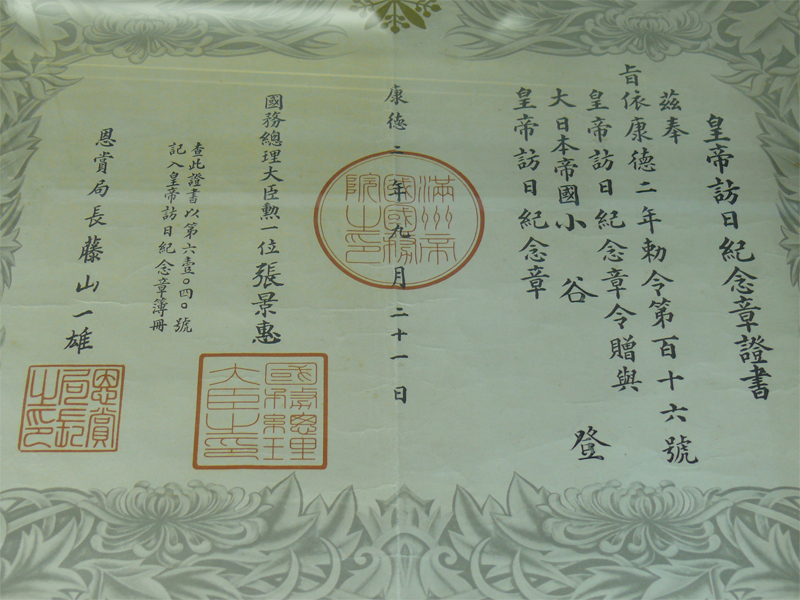 皇帝訪日紀念章證書
茲奉
旨依康德二年勅令第百十六號
皇帝訪日紀念章令贈與
大日本帝國小谷登
皇帝訪日紀念章
康德二年九月二十一日
滿洲帝國國務院之印
國務總理大臣勲一位張景惠
國務總理大臣之印
查此證書以第六壹〇四〇號
記入皇帝訪日紀念章簿冊
恩賞局長藤山一雄
恩賞局長之印